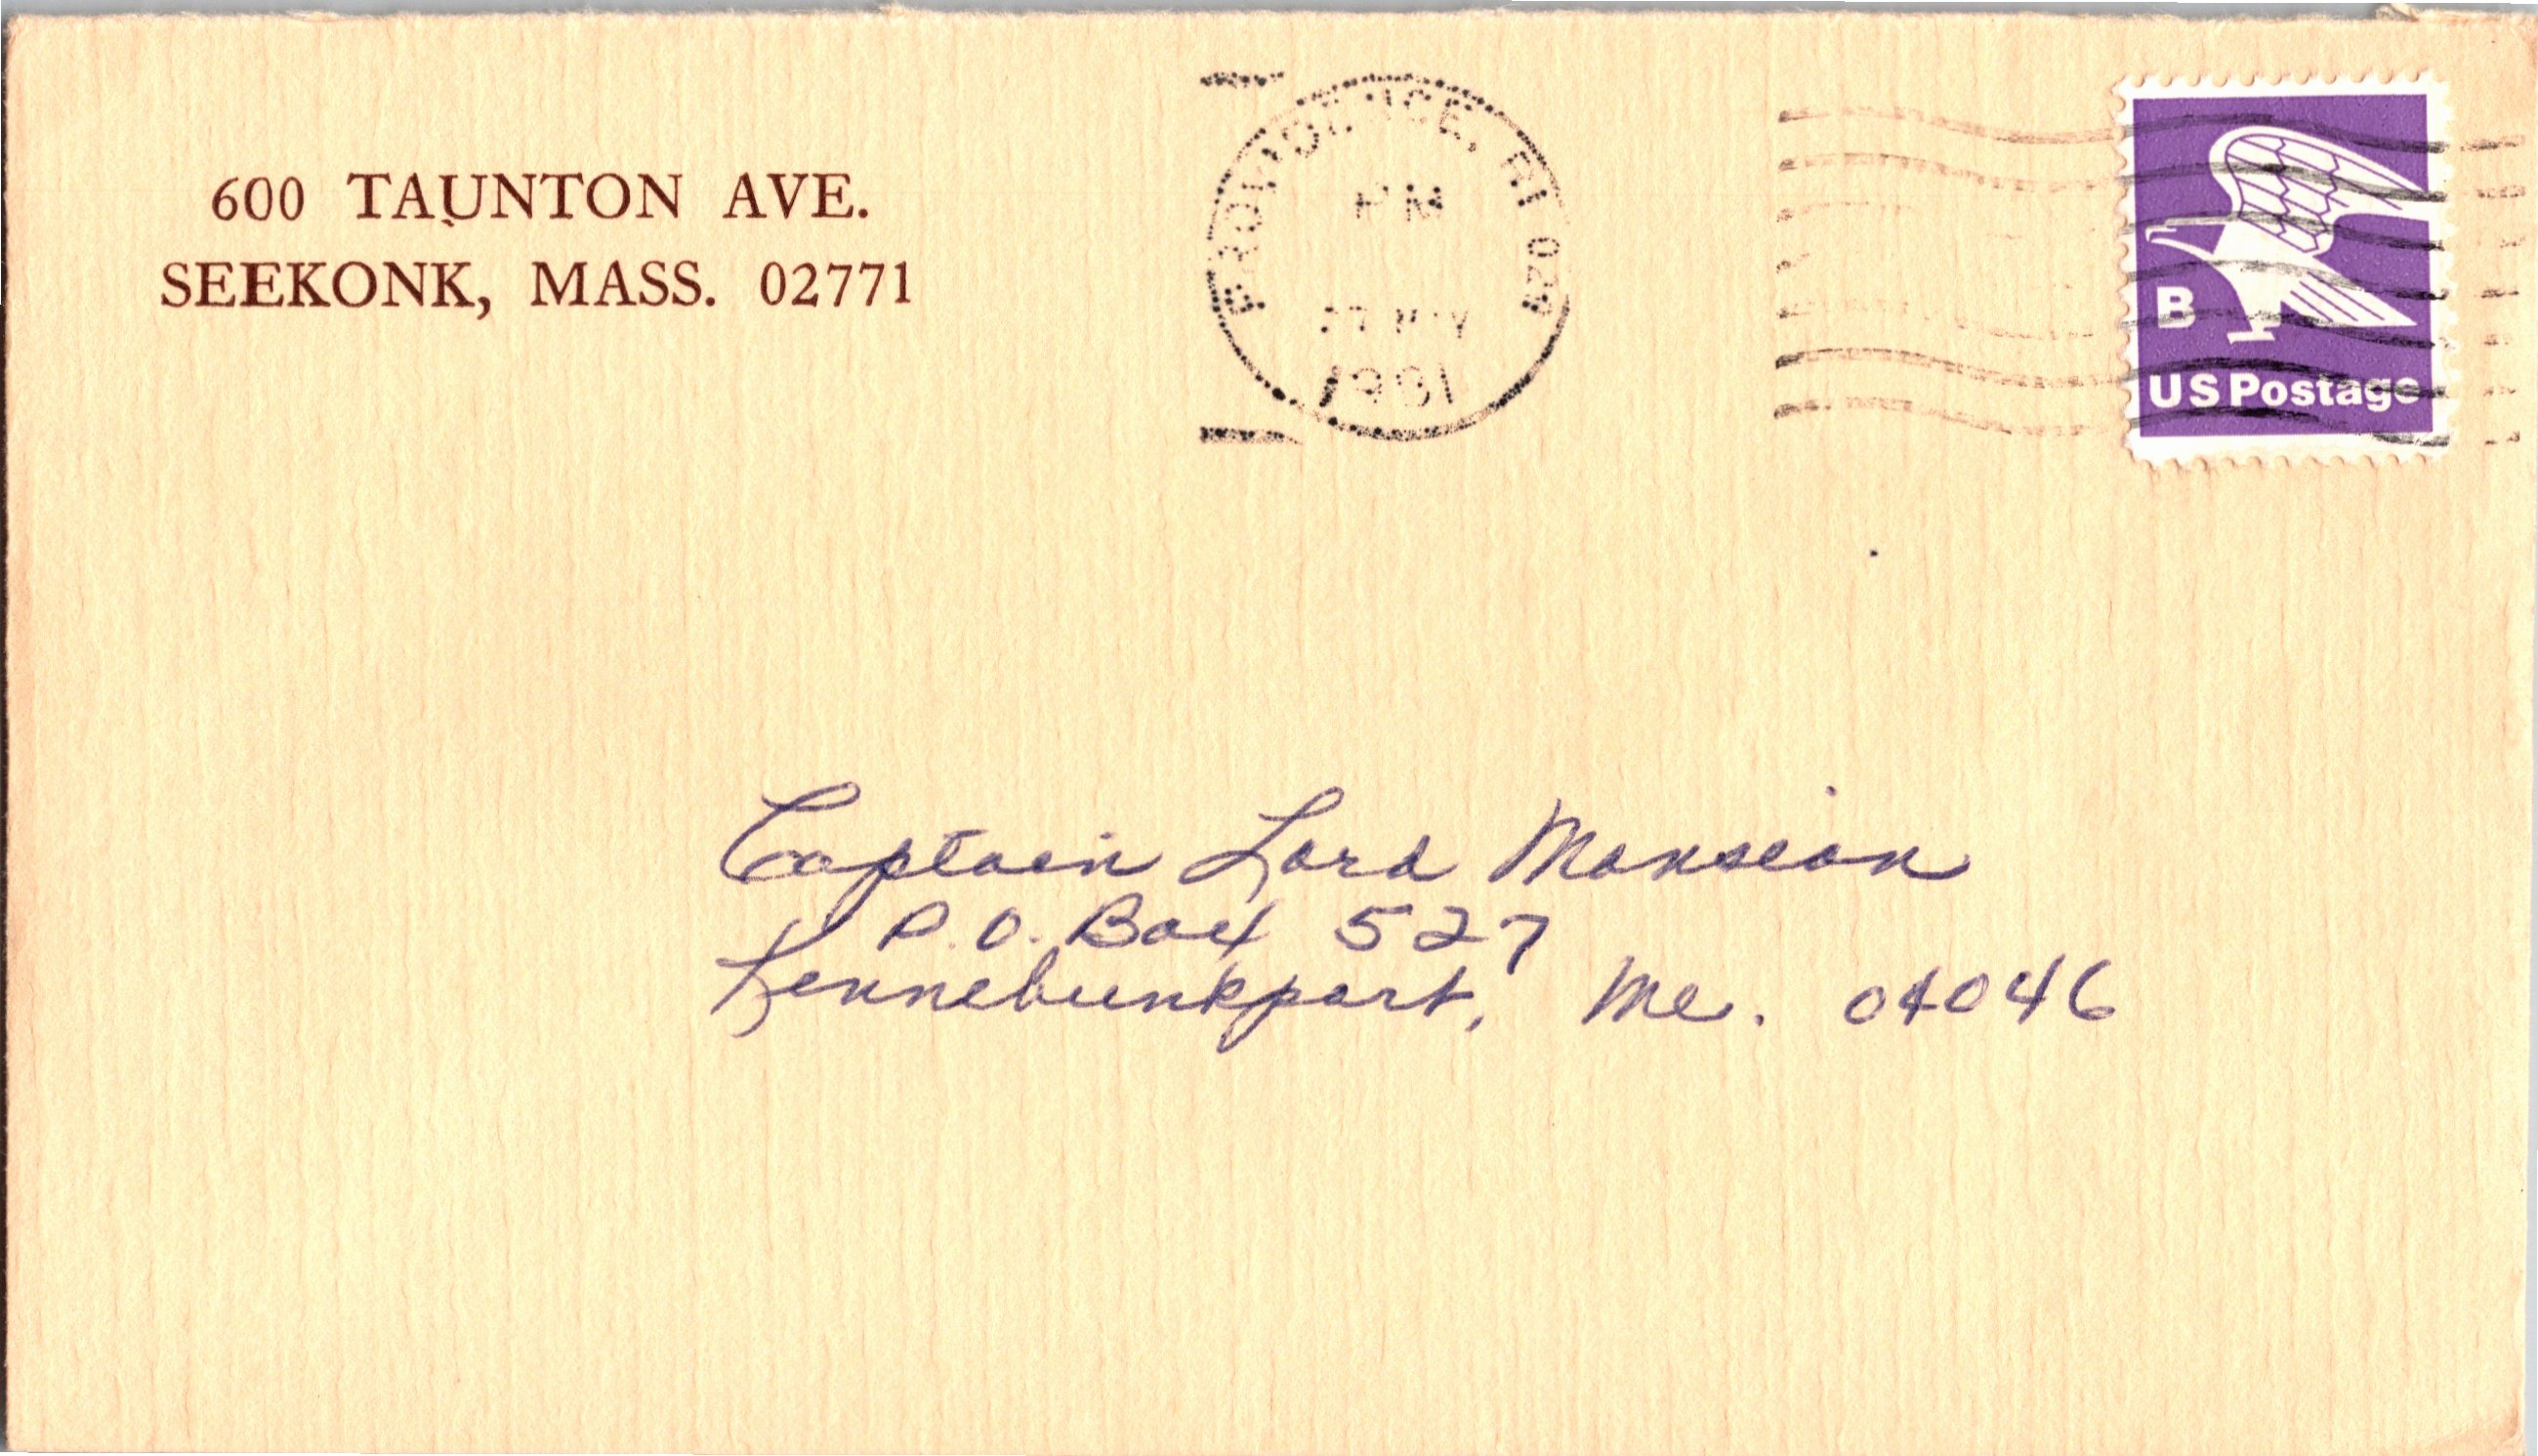 600 TAUNTON AVE.
SEEKONK, MASS. 02771
PROVIDENCE, RI 029
PM
27 MAY
1981
B
US Postage
Captain Lord Mansion
P.O. Box 527
Kennebunkport, Me. 04046